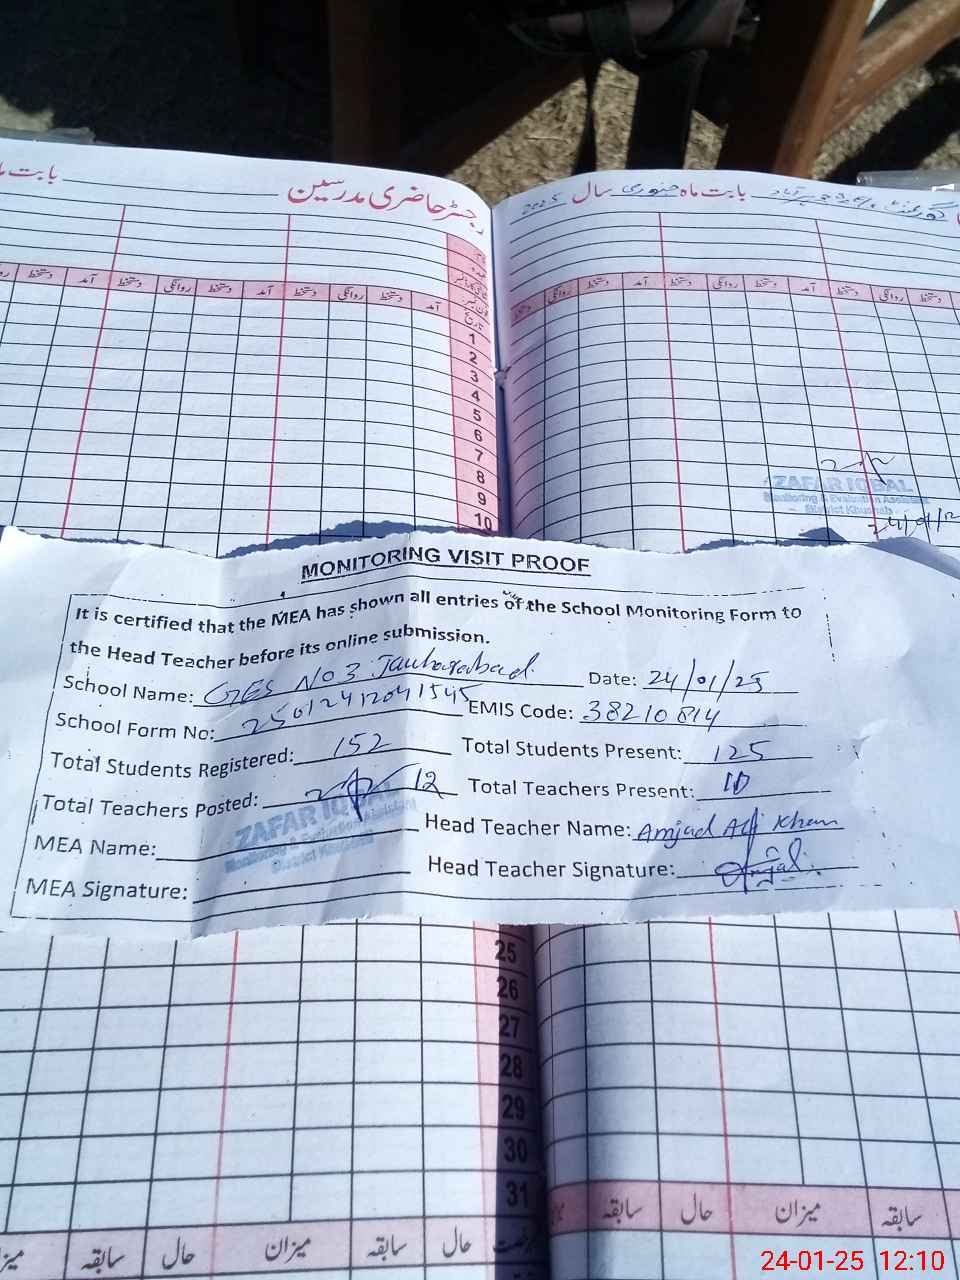 بابت ماہ
رجسٹر حاضری مدرسین
بابت ماہ جنوری سال 2025
دستخط آمد دستخط روانگی دستخط آمد دستخط روانگی دستخط آمد
تاریخ
دستخط روانگی دستخط آمد دستخط روانگی دستخط آمد دستخط روانگی دستخط
1
2
3
4
5
6
7
8
9
10
ZAFAR IQBAL
Monitoring & Evaluation Assistant
District Khushab
MONITORING VISIT PROOF
It is certified that the MEA has shown all entries of the School Monitoring Form to
the Head Teacher before its online submission.
School Name: GES NO 3 Jauharabad Date: 24/01/25
School Form No: 25012412041545 EMIS Code: 38210814
Total Students Registered: 152 Total Students Present: 125
Total Teachers Posted: 12 Total Teachers Present: 10
MEA Name: ZAFAR IQBAL Head Teacher Name: Amjad Ali Khan
Monitoring & Evaluation Assistant
District Khushab
MEA Signature: Head Teacher Signature: Amjad
25
26
27
28
29
30
31
سابقہ حال میزان سابقہ
میزان سابقہ حال میزان سابقہ حال
24-01-25 12:10